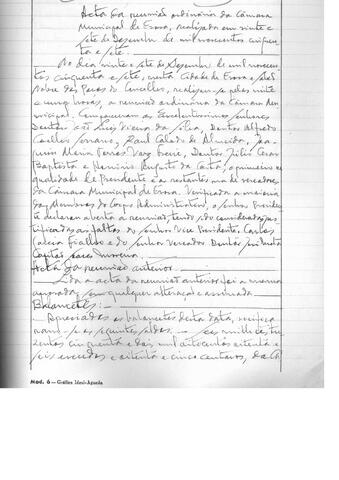 Acta da reunião ordinária da Câmara
Municipal de Evora, realizada em vinte e
sete de Dezembro de mil novecentos cinquen-
ta e sete.
No dia vinte e sete de Dezembro de mil novecen-
tos cinquenta e sete, nesta Cidade de Evora e Sala
Nobre dos Paços do Concelho, realizou-se pelas vinte
e uma horas, a reunião ordinária da Câmara Mu-
nicipal. Compareceram os Excelentíssimos senhores
Doutor Luis Vieira da Silva, Doutor Alfredo
Serrano, Raul Calado de Almeida, Joa-
quim Maria Vaz Freire, Doutor Júlio Cesar
Baptista e Augusto da Costa, o primeiro na
qualidade de Presidente e os restantes na de vereadores
da Câmara Municipal de Evora. Verificada a maioria
dos Membros do Corpo Administrativo, o senhor Presiden-
te declarou aberta a reunião, tendo sido consideradas jus-
tificadas as faltas do senhor Vice Presidente, Carlos
Fialho e do senhor Vereador Doutor
Acta da reunião anterior.
Lida a acta da reunião anterior foi a mesma
aprovada, sem qualquer alteração e assinada.
Balancetes:
Apreciados os balancetes desta data, verifica-
ram-se os seguintes saldos: tre-
zentos cinquenta e dois mil oitocentos oitenta e
seis escudos e oitenta e cinco centavos, da Câ
Mod. 6 — Gráfica Ideal-Agueda